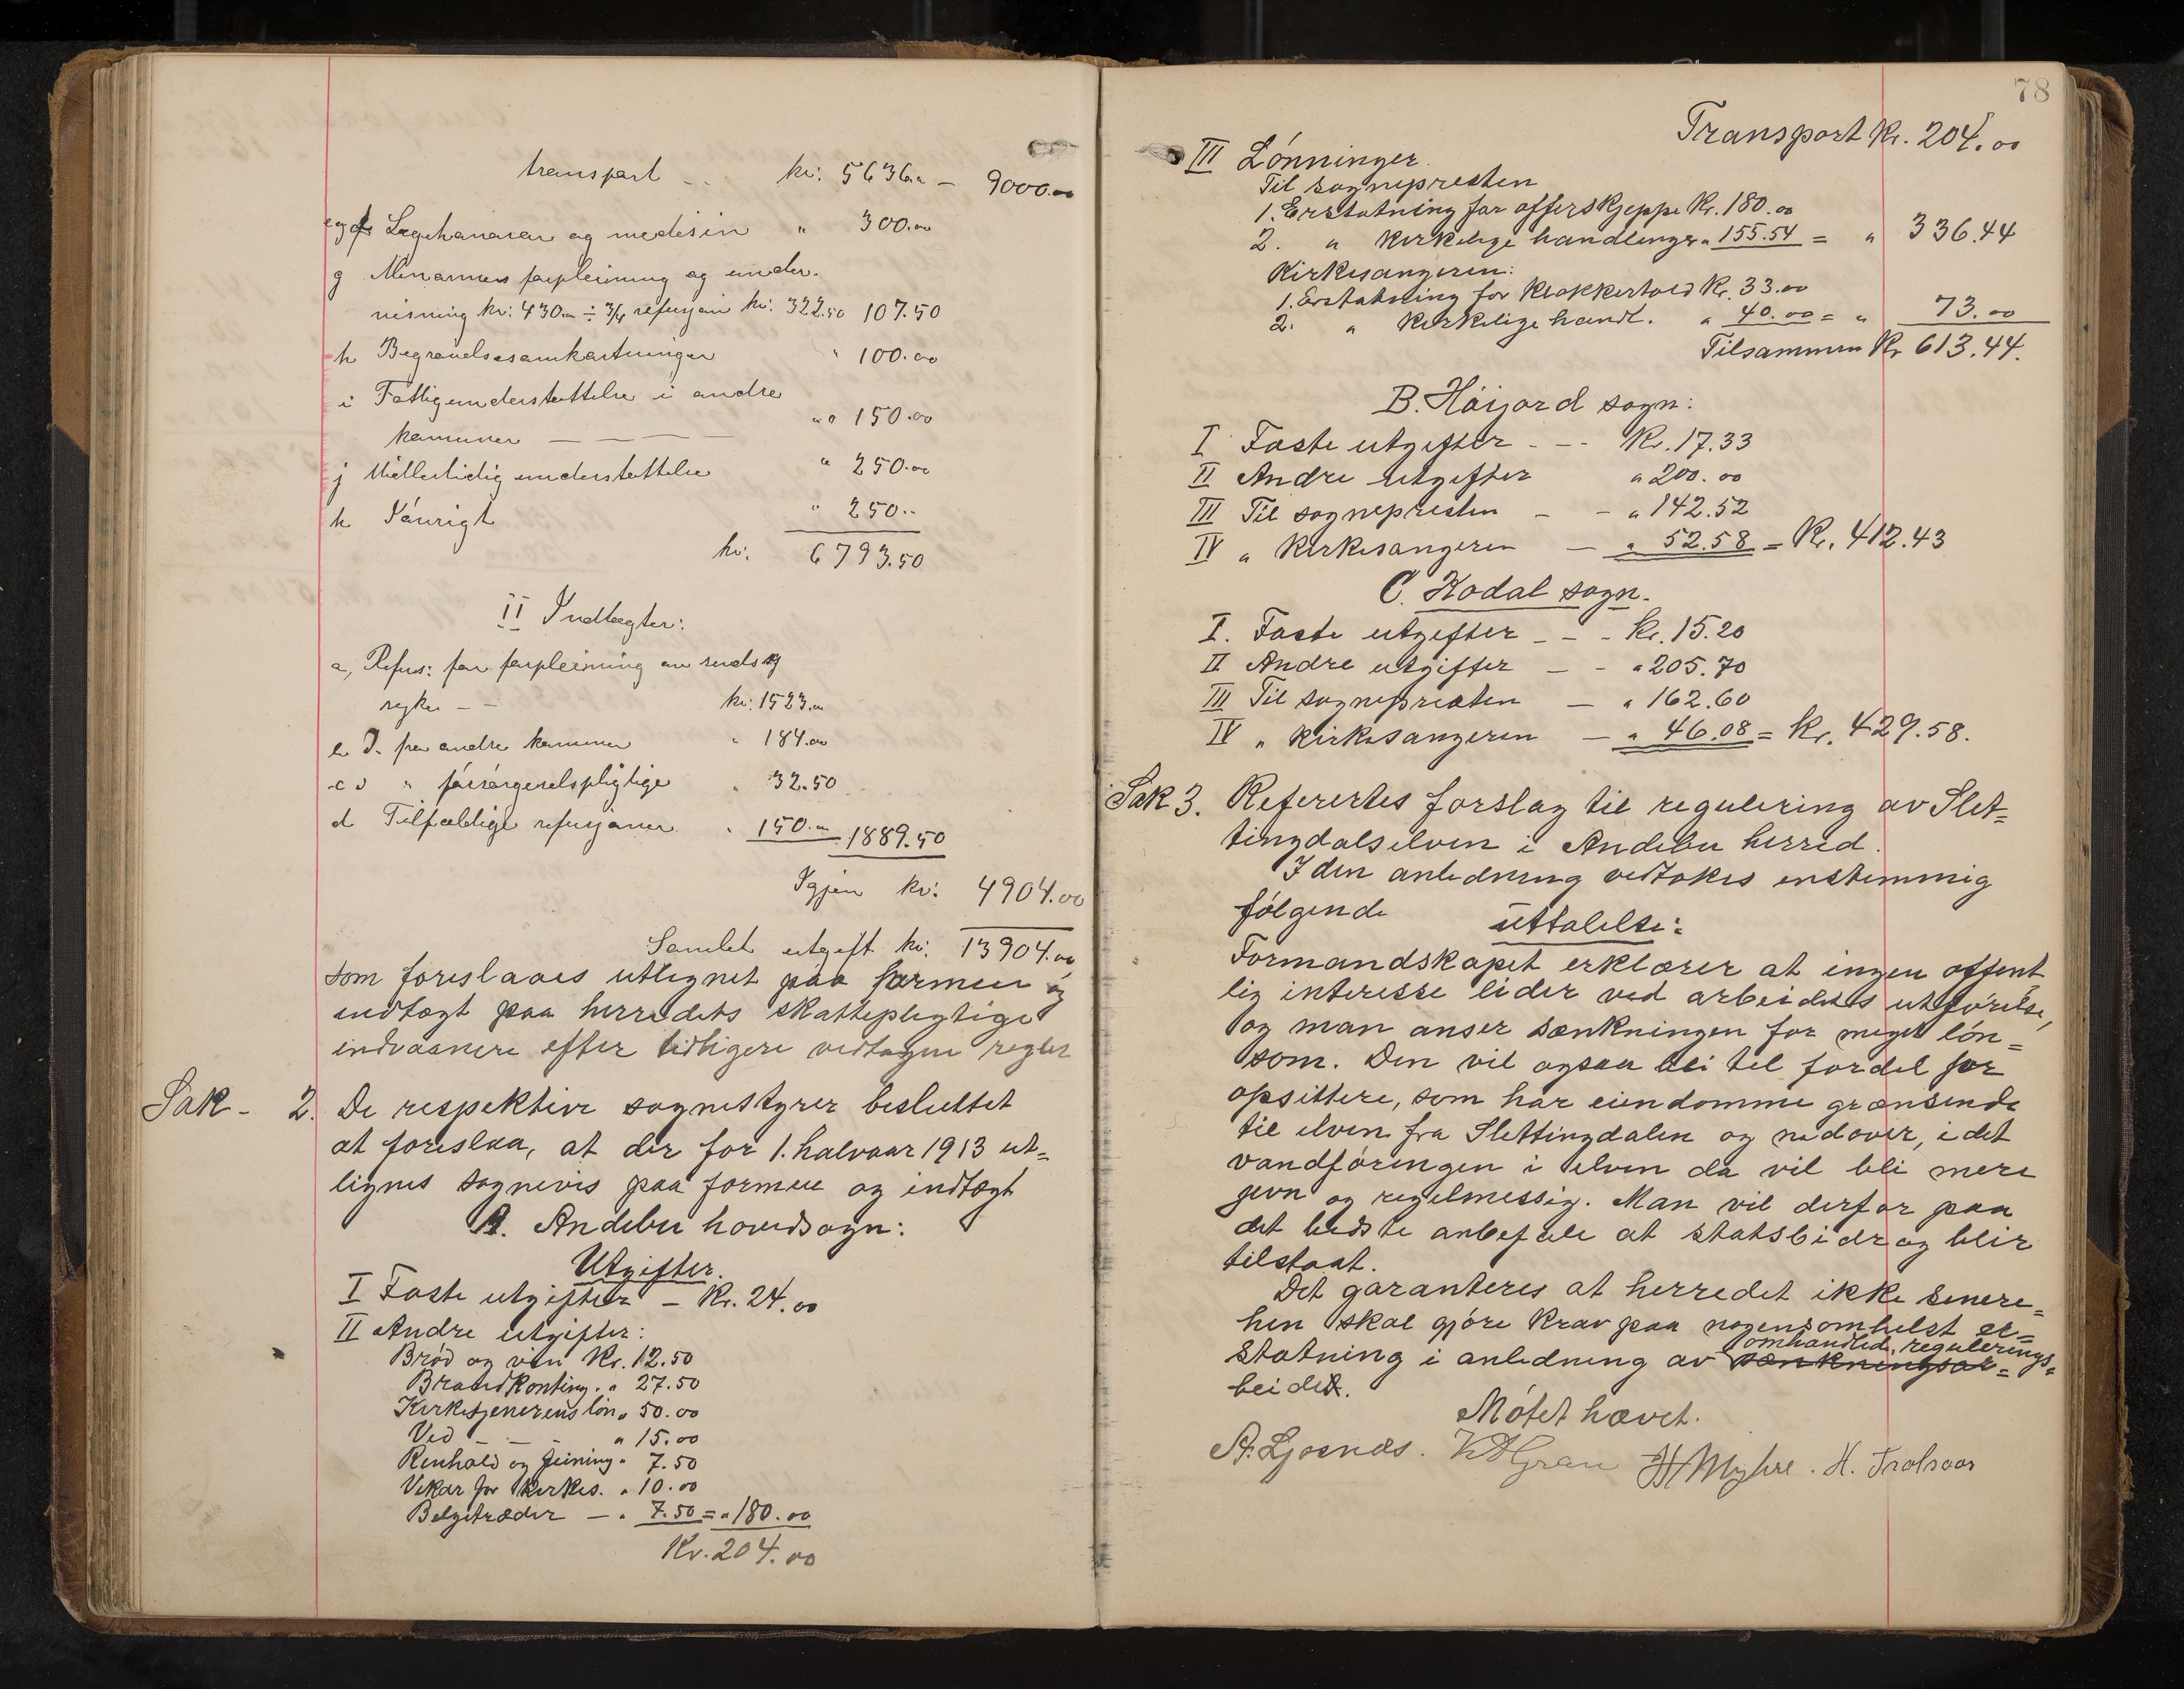 transport - . kr: 5636.00 — 9000.00
Lægehonorar og medisin " 300.00
g forpleining og under-
visning kr: 430.00 ÷ 3/4 refusjon kr: 322.50 107.50
h Begravelsesomkostninger " 100.00
i Fattigunderstøttelse i andre
komuner — — — " 150.00
j Midlertidig understøttelse " 250.00
k Iøvrigt " 250..
kr. 6793.50
II Indtægter:
a, Refus: for forpleining av sinds sy
syke - - kr: 1523.00
D. fra andre komuner " 184.00
c D " forsørgelsespligtige " 32.50
d Tilfældige refusjoner " 150.00 1889.50
Igjen kr: 4904.00
Samlet utgift kr: 13904.00
som foreslaaes utlignet paa formue og
indtægt paa herredets skattepligtige
indvaanere efter tidligere vedtagne regler
Sak - 2. De respektive sognestyrer besluttet
at foreslaa, at der for 1. halvaar 1913 ut=
lignes sognevis paa formue og indtægt
A. Andebu hovedsogn:
Utgifter.
I Faste utgifter - Kr. 24.00
II Andre utgifter:
Brød og vin Kr. 12.50
Brandkonting. " 27.50
Kirketjenerens løn " 50.00
Ved - - - " 15.00
Renhold og feining " 7.50
Vikar for kirkes. " 10.00
Belgetræder — " 7.50 = " 180.00
Kr. 204.00
78
Transport Kr. 204.00
III Lønninger.
Til sognepresten
1. Erstatning for offerskjeppe Kr. 180.00
2. " kirkelige handlinger " 155.54 = " 336.44
Kirkesangeren:
1. Erstatning for klokkertold Kr. 33.00
2. " kirkelige handl. " 40.00 = " 73.00
Tilsammen Kr 613.44.
B. Høijord sogn:
I Faste utgifter - - - Kr. 17.33
II Andre utgifter " 200.00
III Til sognepresten - - " 142.52
IV " kirkesangeren — " 52.58 = Kr. 412.43
C. Kodal sogn.
I. Faste utgifter - - - Kr. 15.20
II Andre utgifter — - " 205.70
III Til sognepresten — " 162.60
IV " kirkesangeren — " 46.08 = Kr. 429.58.
Sak 3. Refertes forslag til regulering av Slet=
tingdalselven i Andebu herred.
I den anledning vedtokes enstemmig
følgende uttalelse:
Formandskapet erklærer at ingen offent
lig interesse lider ved arbeidets utførelse,
og man anser sænkningen for meget løn=
som. Den vil ogsaa bli til fordel for
opsittere, som har eiendomme grænsende
til elven fra Slettingdalen og nedover, idet
vandføringen i elven da vil bli mere
jevn og regelmessig. Man vil derfor paa
det bedste anbefale at statsbidrag blir
tilstaat.
Det garanteres at herredet ikke senere=
hen skal gjøre krav paa nogensomhelst er=
omhandlede regulerings=
statning i anledning av sænkningsar=
beidet.
Møtet hævet.
A. Gjosnds. H Myhre. H. Trolsaas